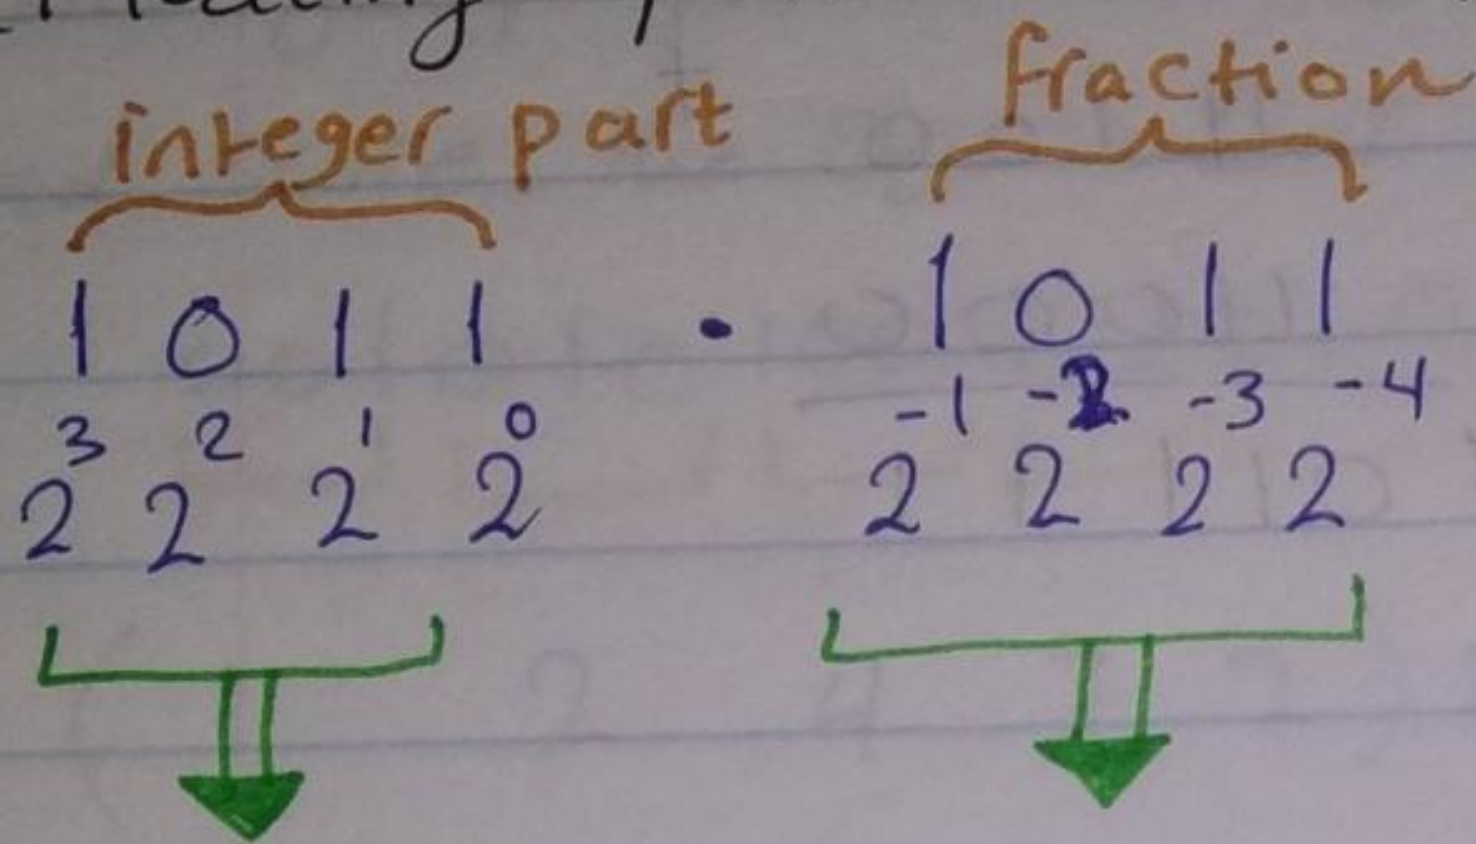 Floating
integer part fraction
1 0 1 1 . 1 0 1 1
2³ 2² 2¹ 2⁰ 2⁻¹ 2⁻² 2⁻³ 2⁻⁴